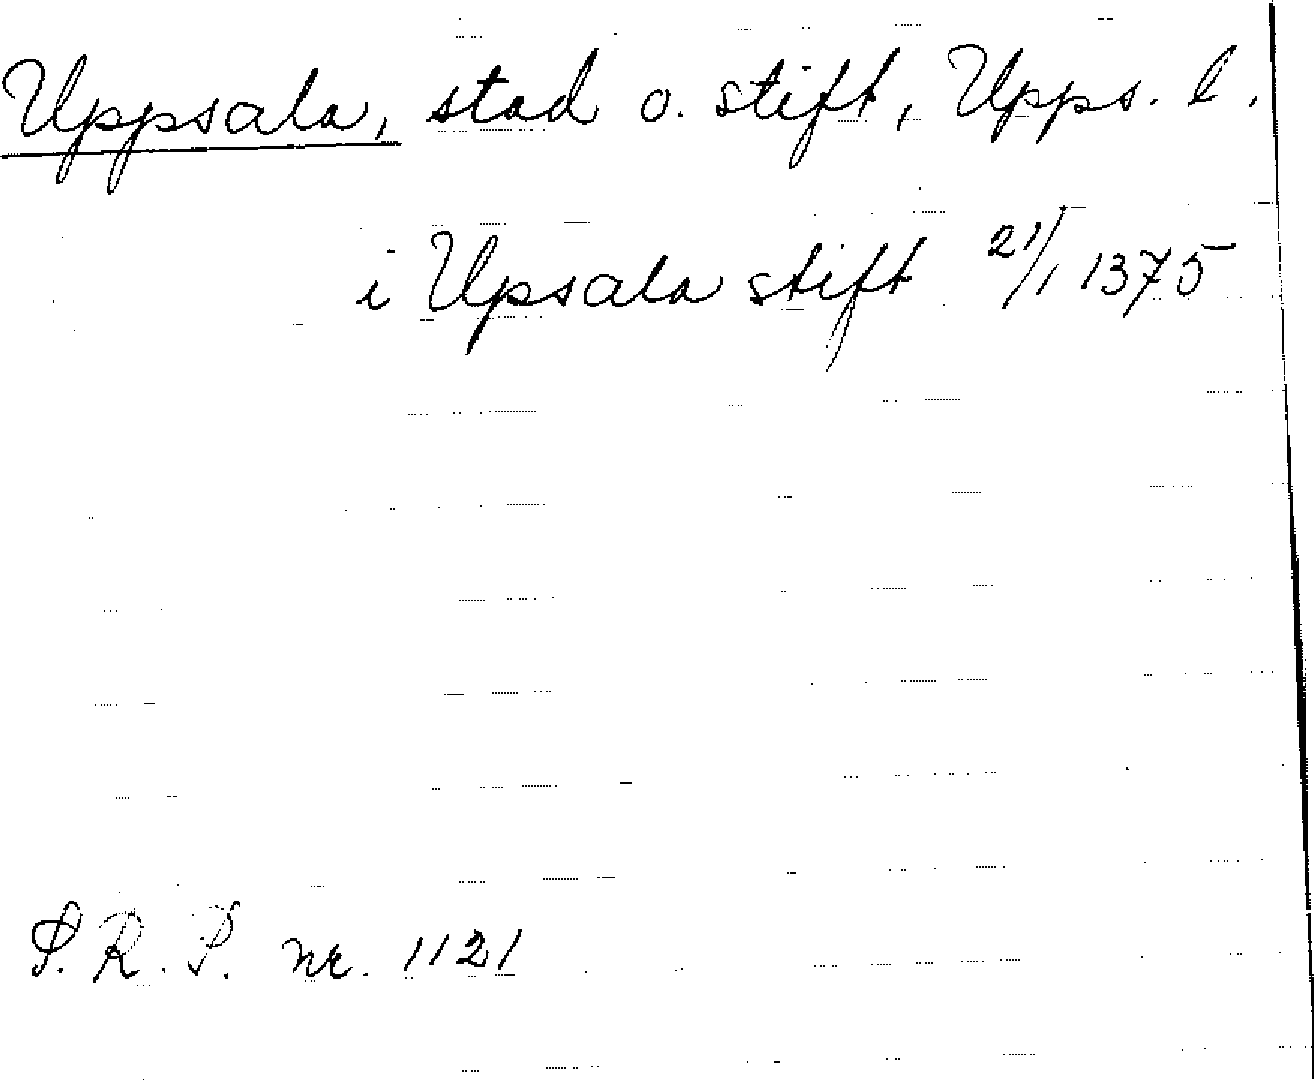 Uppsala, stad o. stift, Upps. l.
i Upsala stift 21/1 1375
S. R. P. nr. 1121